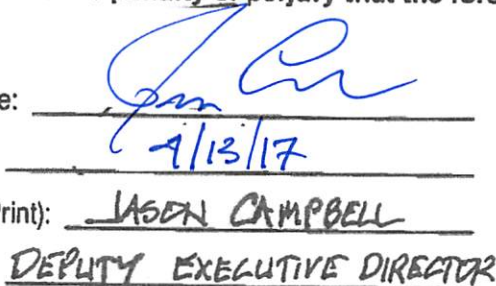 perjury that the
e:
4/13/17
rint): JASON CAMPBELL
DEPUTY EXECUTIVE DIRECTOR